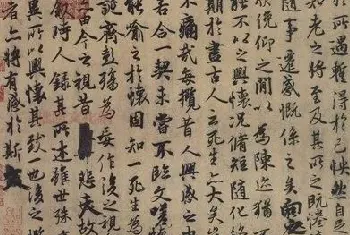 於所遇蹔得於己怏然自
知老之將至及其所之既惓
隨事遷感慨係之矣向
俛仰之閒以為陳迹猶
能不以之興懷況脩短隨化
期於盡古人云死生亦大矣
痛哉每攬昔人興感之由
若合一契未嘗不臨文嗟
能喻之於懷固知一死生為
誕齊彭殤為妄作後之視
由今之視昔悲夫故
敘時人錄其所述雖世殊
異所以興懷其致一也後之
者亦將有感於斯文